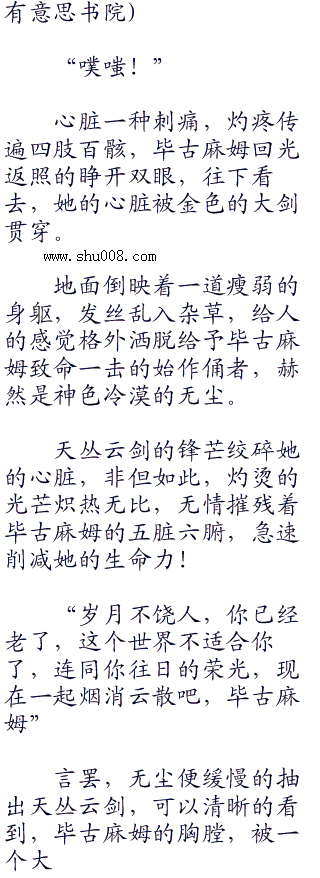 有意思书院)
“噗嗤！”
心脏一种刺痛，灼疼传
遍四肢百骸，毕古麻姆回光
返照的睁开双眼，往下看
去，她的心脏被金色的大剑
贯穿。
www.shu008.com
地面倒映着一道瘦弱的
身躯，发丝乱入杂草，给人
的感觉格外洒脱给予毕古麻
姆致命一击的始作俑者，赫
然是神色冷漠的无尘。
天丛云剑的锋芒绞碎她
的心脏，非但如此，灼烫的
光芒炽热无比，无情摧残着
毕古麻姆的五脏六腑，急速
削减她的生命力！
“岁月不饶人，你已经
老了，这个世界不适合你
了，连同你往日的荣光，现
在一起烟消云散吧，毕古麻
姆”
言罢，无尘便缓慢的抽
出天丛云剑，可以清晰的看
到，毕古麻姆的胸膛，被一
个大